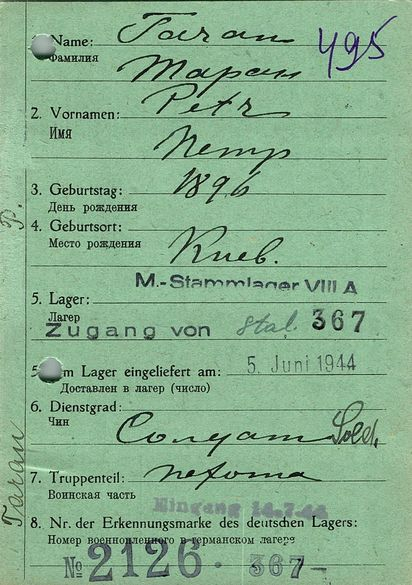 495
1. Name: Taran
Фамилия Таран
2. Vornamen: Petr
Имя Петр
3. Geburtstag: 1896
День рождения
4. Geburtsort:
Место рождения Киев.
M.-Stammlager VIII A
5. Lager:
Лагер
Zugang von Stal. 367
5. Im Lager eingeliefert am: 5. Juni 1944
Доставлен в лагер (число)
6. Dienstgrad:
Чин Солдат Sold.
7. Truppenteil: пехота
Воинская часть
Eingang 14.7.44
8. Nr. der Erkennungsmarke des deutschen Lagers:
Номер военнопленного в германском лагере
№ 2126 · 367-
Taran P.